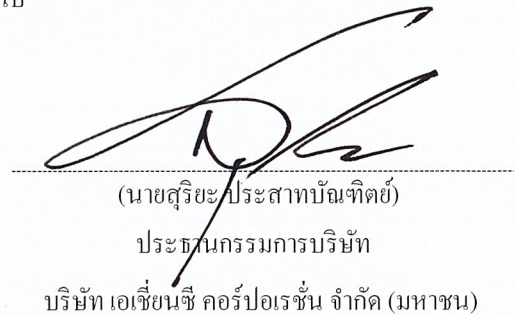 (นายสุริยะ ประสาทบัณฑิตย์)
ประธานกรรมการบริษัท
บริษัท เอเชี่ยนซี คอร์ปอเรชั่น จำกัด (มหาชน)